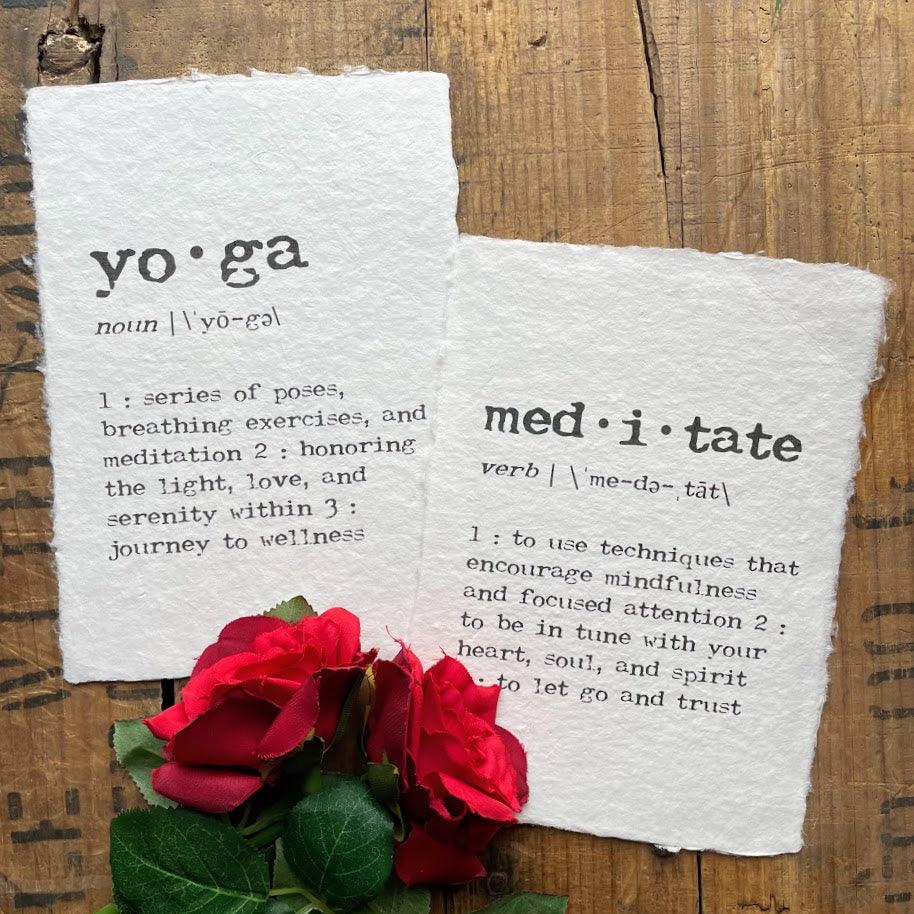 yo•ga
noun | \ˈyō-gə\
1 : series of poses,
breathing exercises, and
meditation 2 : honoring
the light, love, and
serenity within 3 :
journey to wellness
med•i•tate
verb | \ˈme-də-ˌtāt\
1 : to use techniques that
encourage mindfulness
and focused attention 2 :
to be in tune with your
heart, soul, and spirit
: to let go and trust